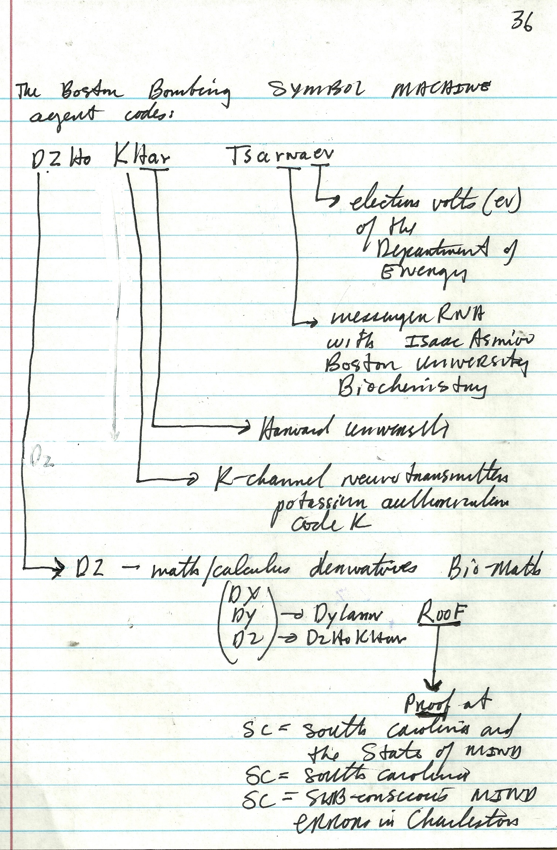 36
The Boston Bombing SYMBOL MACHINE
agent codes:
DZHo KHar Tsarnaev
electron volts (ev)
of the
Department of
Energy
messenger RNA
with Isaac Asmivo
Boston University
Biochemistry
Harvard University
K-channel neurotransmitters
potassium
code K
Dz
DZ — math/calculus derivatives Bio-Math
DX
DY → Dylann ROOF
DZ → DZHoKHar
Proof at
SC = South Carolina and
the State of MIND
SC = South Carolina
SC = SUB-conscious MIND
errors in Charleston